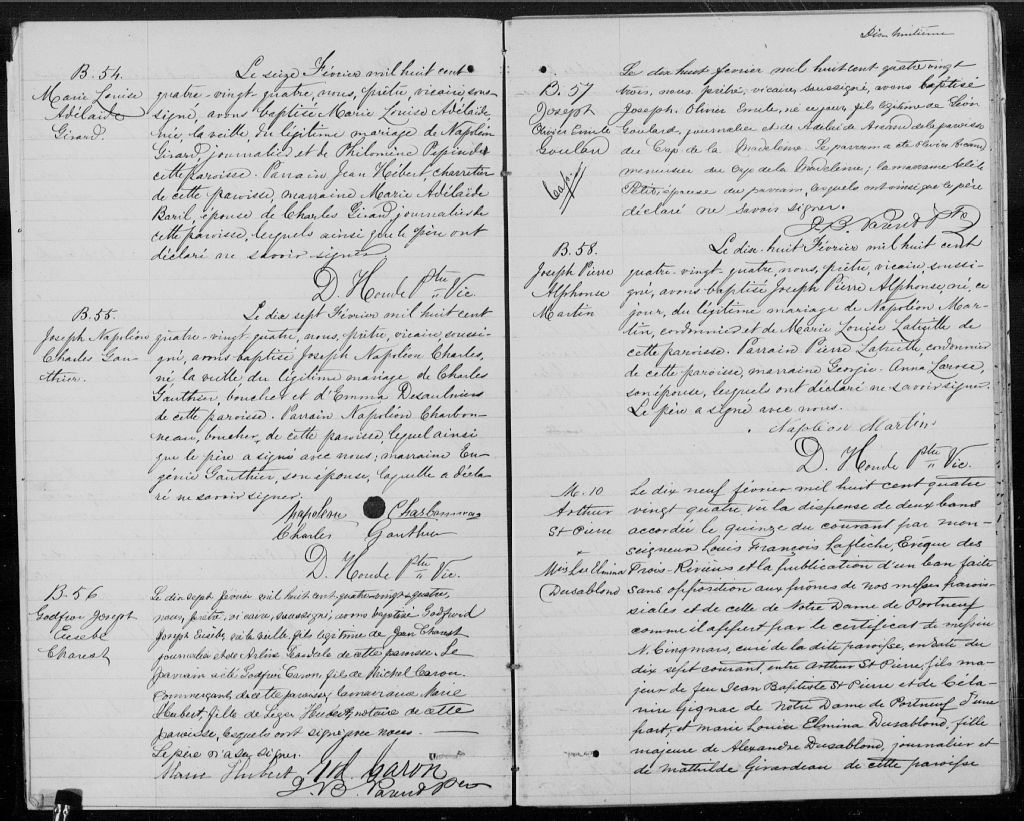 B. 54.
Marie Louise
Adélaide
Girard.
Le seize Février mil huit cent
quatre-vingt-quatre, nous, prêtre, vicaire sous-
signé, avons baptisé Marie Louise Adélaïde,
née la veille du légitime mariage de Napoléon
Girard, journalier et de Philomène Pepin de
cette paroisse. Parrain Jean Hébert, charretier
de cette paroisse, marraine Marie Adélaïde
Baril, épouse de Charles Girard, journalier de
cette paroisse, lesquels ainsi que le père ont
déclaré ne savoir signer.
D. Houde Ptre Vic.
B. 55.
Joseph Napoléon
Charles Gau-
thier.
Le dix sept Février mil huit cent
quatre-vingt quatre, nous, prêtre, vicaire, soussi-
gné, avons baptisé Joseph Napoléon Charles,
né la veille du légitime mariage de Charles
Gauthier, boucher et d'Emma Desaulniers
de cette paroisse. Parrain Napoléon Charbon-
neau, boucher, de cette paroisse lequel ainsi
que le père a signé avec nous; marraine Eu-
génie Gauthier, son épouse, laquelle a décla-
ré ne savoir signer.
Napoleon Charbonneau
Charles Gauthier
D. Houde Ptre Vic.
B-56
Godfroi Joseph
Eusèbe
Charest
Le dix sept février mil huit cent quatre-vingt-quatre,
nous, prêtre, vicaire, soussigné, avons baptisé Godfroid
Joseph Eusèbe né la veille, fils légitime de Jean Charest
journalier et de de cette paroisse. Le
parrain a été Godfroi Caron, fils de Michel Caron
commerçant, de cette paroisse; la marraine Marie
Hubert, fille de Léger Hubert, notaire de cette
paroisse, lesquels ont signé avec nous.
Le père n'a su signer.
Marie Hubert God. Caron
J. B. Parent Ptre
Dix huitième
B. 57
Joseph
Olivier Emile
Goulard
Le dix huit février mil huit cent quatre vingt
trois, nous, prêtre, vicaire, soussigné, avons baptisé
Joseph. Olivier Emile, né ce jour, fils légitime de Léon
Goulard, journalier et de Adélaide de la paroisse
du Cap de la Madeleine. Le parrain a été Olivier
menuisier du Cap de la Madeleine; la marraine
Petit, épouse du parrain, lesquels ont ainsi que le père
déclaré ne savoir signer.
J. B. Parent Ptre
B. 58.
Joseph Pierre
Alphonse
Martin
Le dix-huit Février mil huit cent
quatre-vingt-quatre, nous, prêtre, vicaire soussi-
gné, avons baptisé Joseph Pierre Alphonse, né, ce
jour, du légitime mariage de Napoléon Mar-
tin, cordonnier et de Marie Louise Labrette de
cette paroisse. Parrain Pierre Labrette, cordonnier
de cette paroisse, marraine Georgie-Anna Larose,
son épouse, lesquels ont déclaré ne savoir signer.
Le père a signé avec nous.
Napoléon Martin
D. Houde Ptre Vic.
M. 10
Arthur
St Pierre
+
Mie Lse Elmina
Dusablond
Le dix neuf février mil huit cent quatre
vingt quatre vu la dispense de deux bans
accordée le quinze du courant par mon-
seigneur Louis François Laflèche, Evêque des
Trois-Rivières et la publication d'un ban faite
sans opposition aux prônes de nos messes parois-
siales et de celle de Notre Dame de Portneuf
comme il appert par le certificat de messire
N. Cingmars, curé de la dite paroisse, en date du
dix sept courant, entre Arthur St Pierre, fils ma-
jeur de feu Jean Baptiste St Pierre et de Céla-
nire Gignac de Notre Dame de Portneuf d'une
part, et marie Louise Elmina Dusablond, fille
majeure de Alexandre Dusablond, journalier et
de mathilde Girardeau de cette paroisse